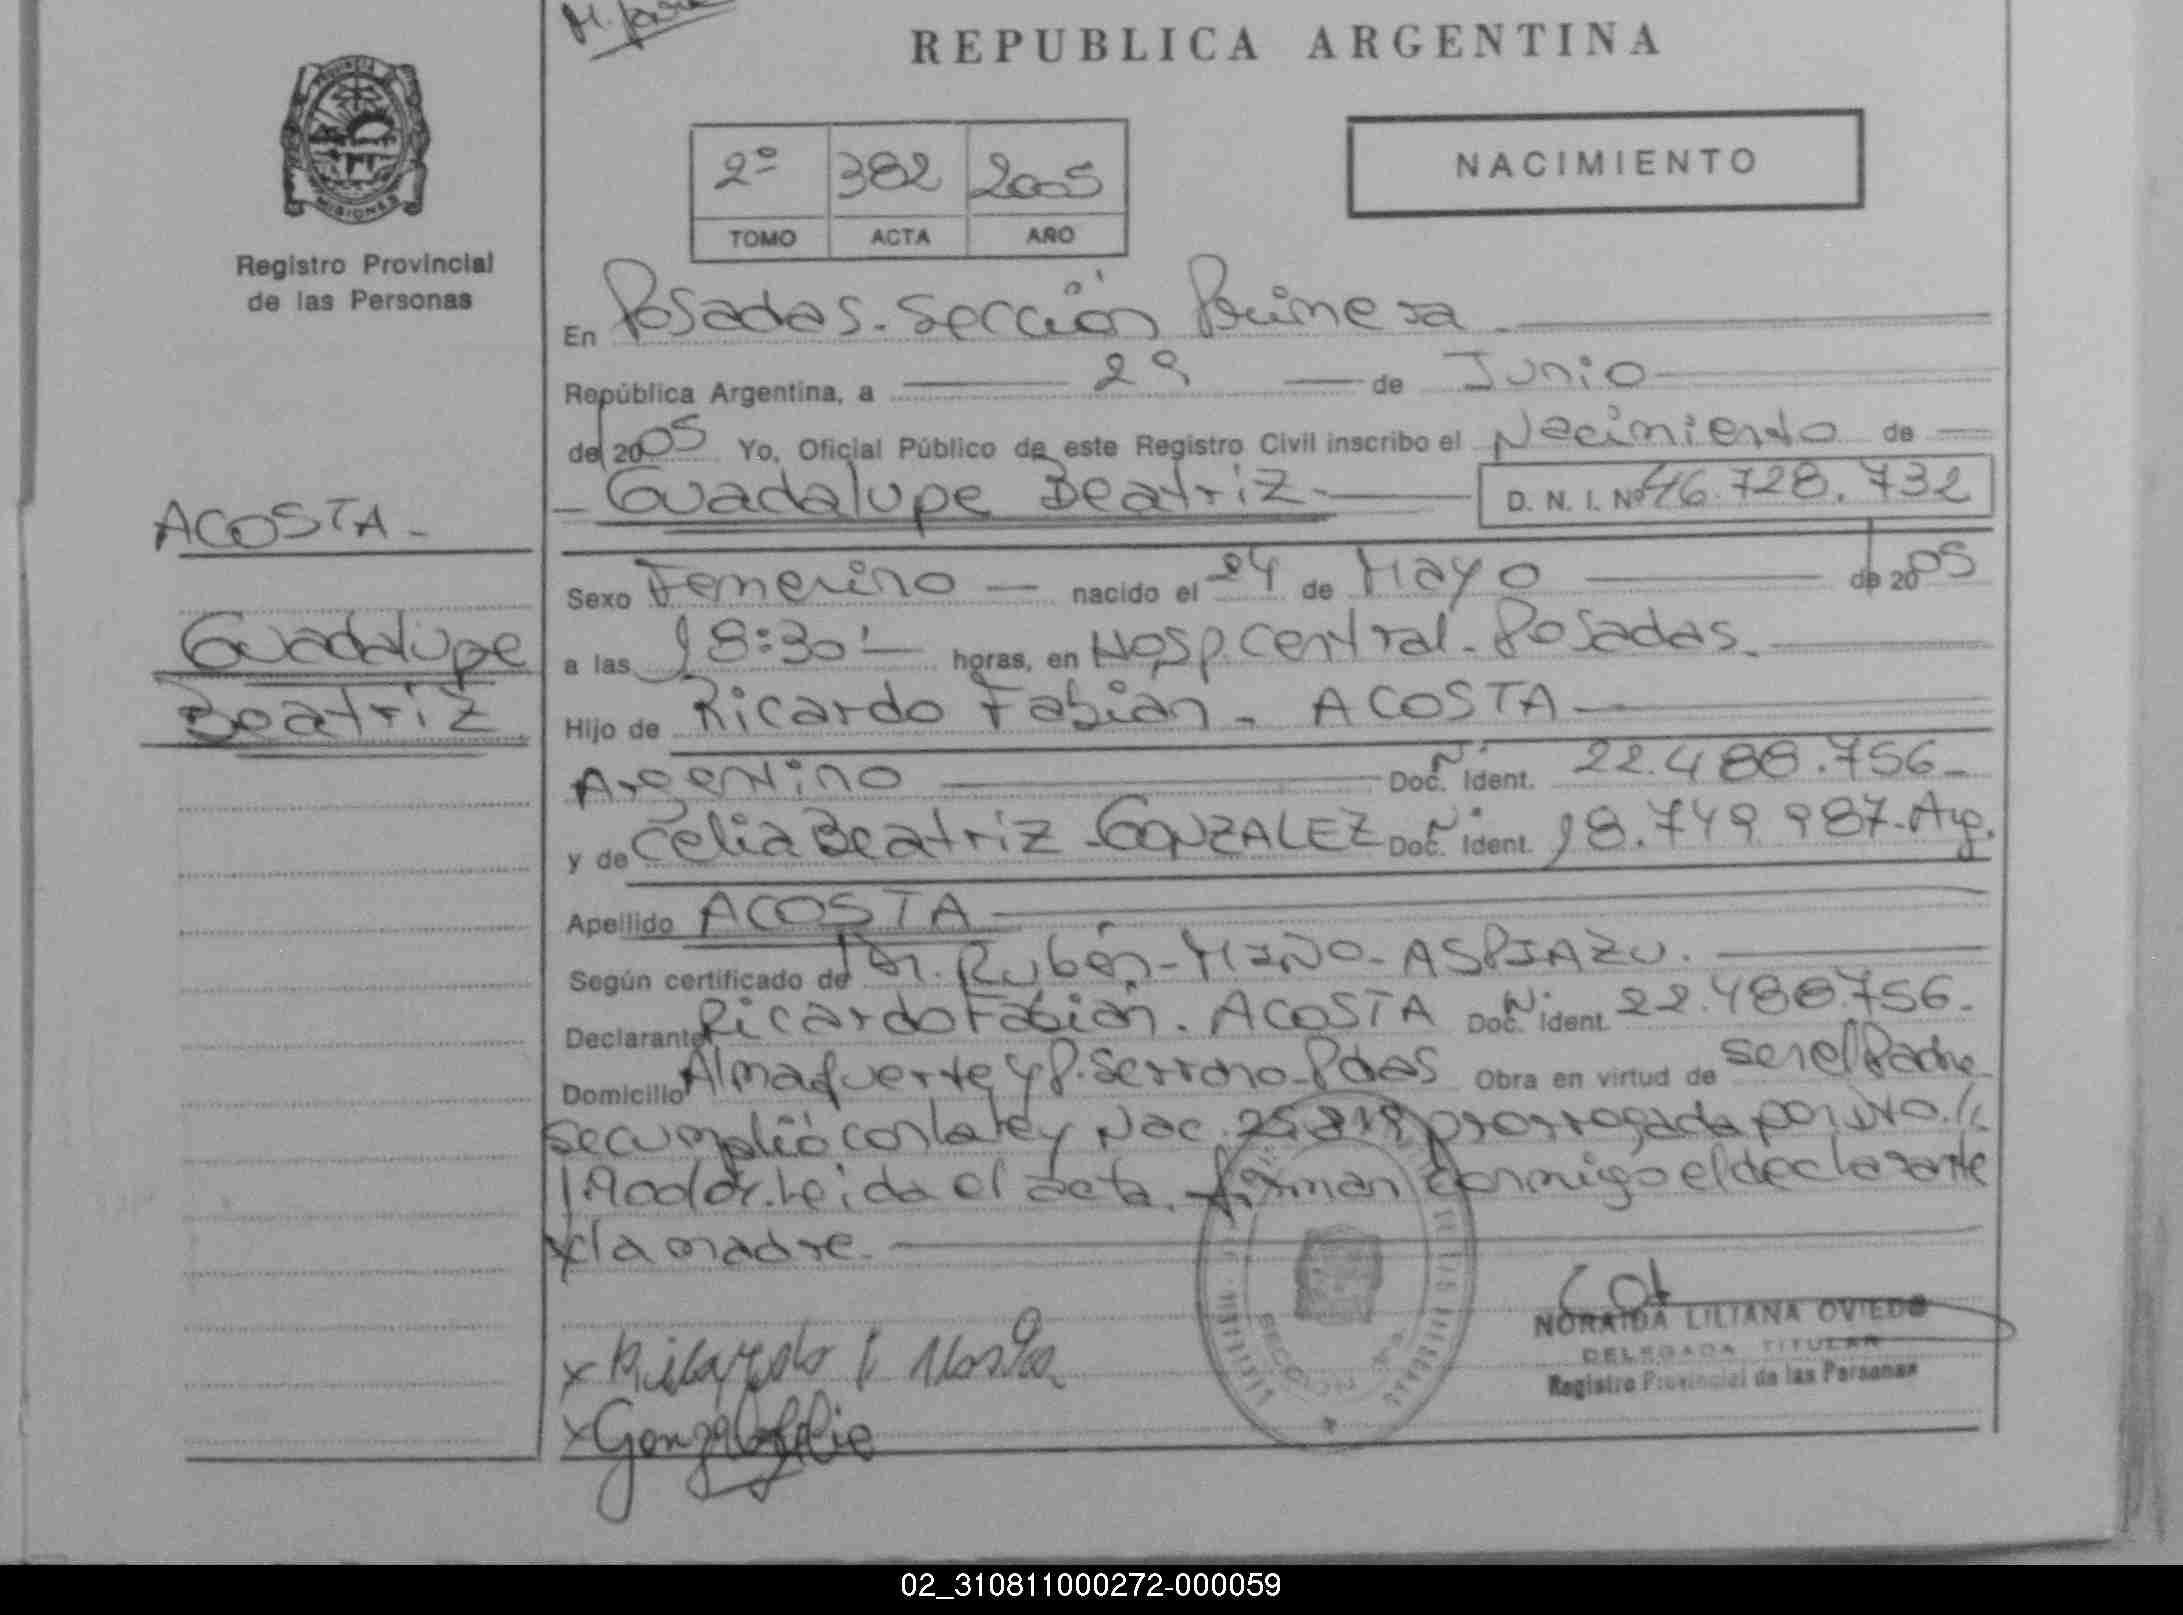 REPUBLICA ARGENTINA
PROVINCIA DE
MISIONES
Registro Provincial
de las Personas
2º 382 2005
TOMO ACTA AÑO
NACIMIENTO
En Posadas. Sección Primera
República Argentina, a 29 de Junio
del 2005 Yo, Oficial Público de este Registro Civil inscribo el Nacimiento de
Guadalupe Beatriz D. N. I. Nº 46.728.732
ACOSTA
Guadalupe
Beatriz
Sexo Femenino nacido el 24 de Mayo de 2005
a las 18:30 horas, en Hosp. Central. Posadas.
Hijo de Ricardo Fabián - ACOSTA
Argentino Doc. Ident. 22.488.756
y de Celia Beatriz - GONZALEZ Doc. Ident. 18.749.987 - Arg.
Apellido ACOSTA
Según certificado de Dr. Rubén - MIÑO - ASPIAZU.
Declarante Ricardo Fabián. ACOSTA Doc. Ident. 22.488.756
Domicilio Almafuerte y P. Serrano - Pdas Obra en virtud de ser el Padre
se cumplió con la ley Nac. 25.819 prorrogada por
Leída el acta, firman conmigo el declarante
y la madre.
NORAIDA LILIANA OVIEDO
DELEGADA TITULAR
Registro Provincial de las Personas
02_310811000272-000059